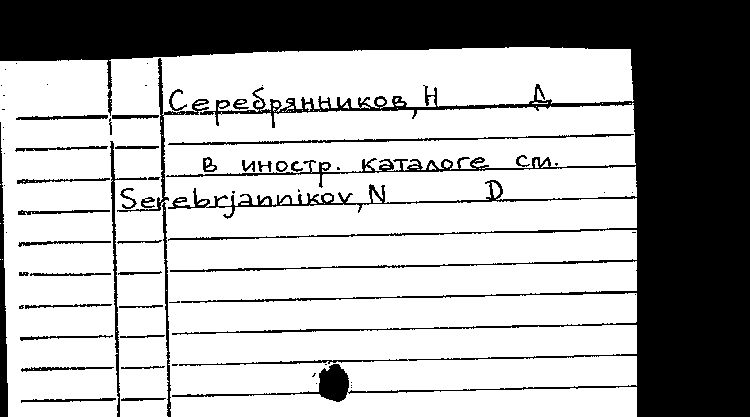 Серебрянников, Н Д
в иностр. каталоге см.
Serebrjannikov, N D